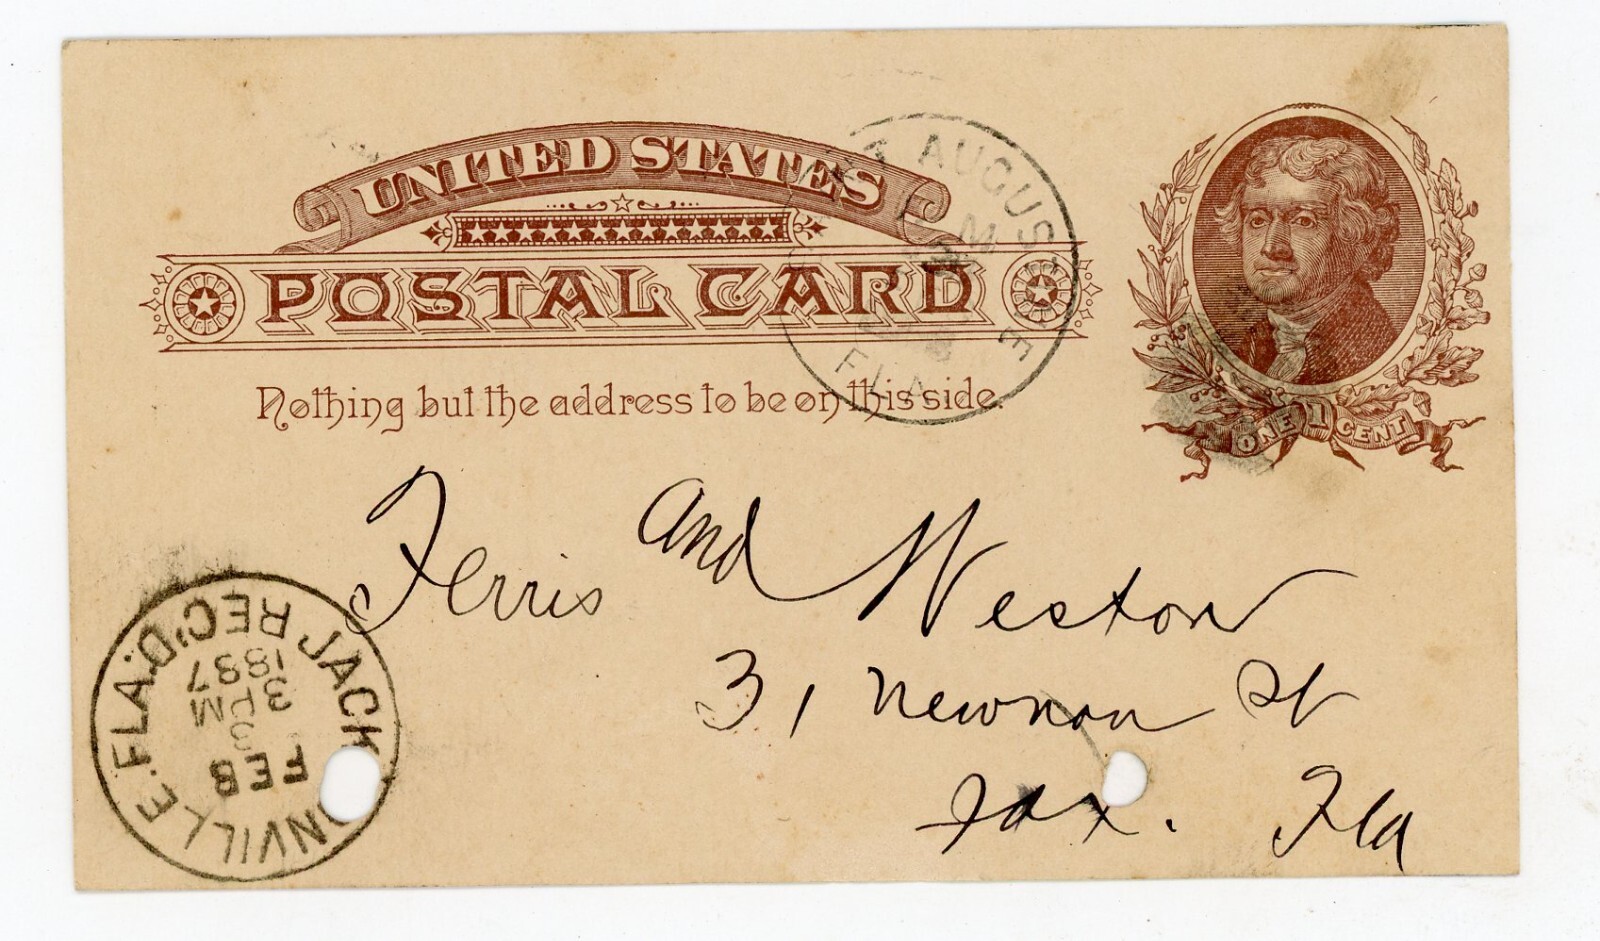 UNITED STATES
POSTAL CARD
Nothing but the address to be on this side.
ONE 1 CENT
AUGUSTINE
M
FLA
Ferris and Weston
31 Newnan St
Jax. Fla
JACK NVILLE. FLA.
REC'D.
FEB
3
3 PM
1887